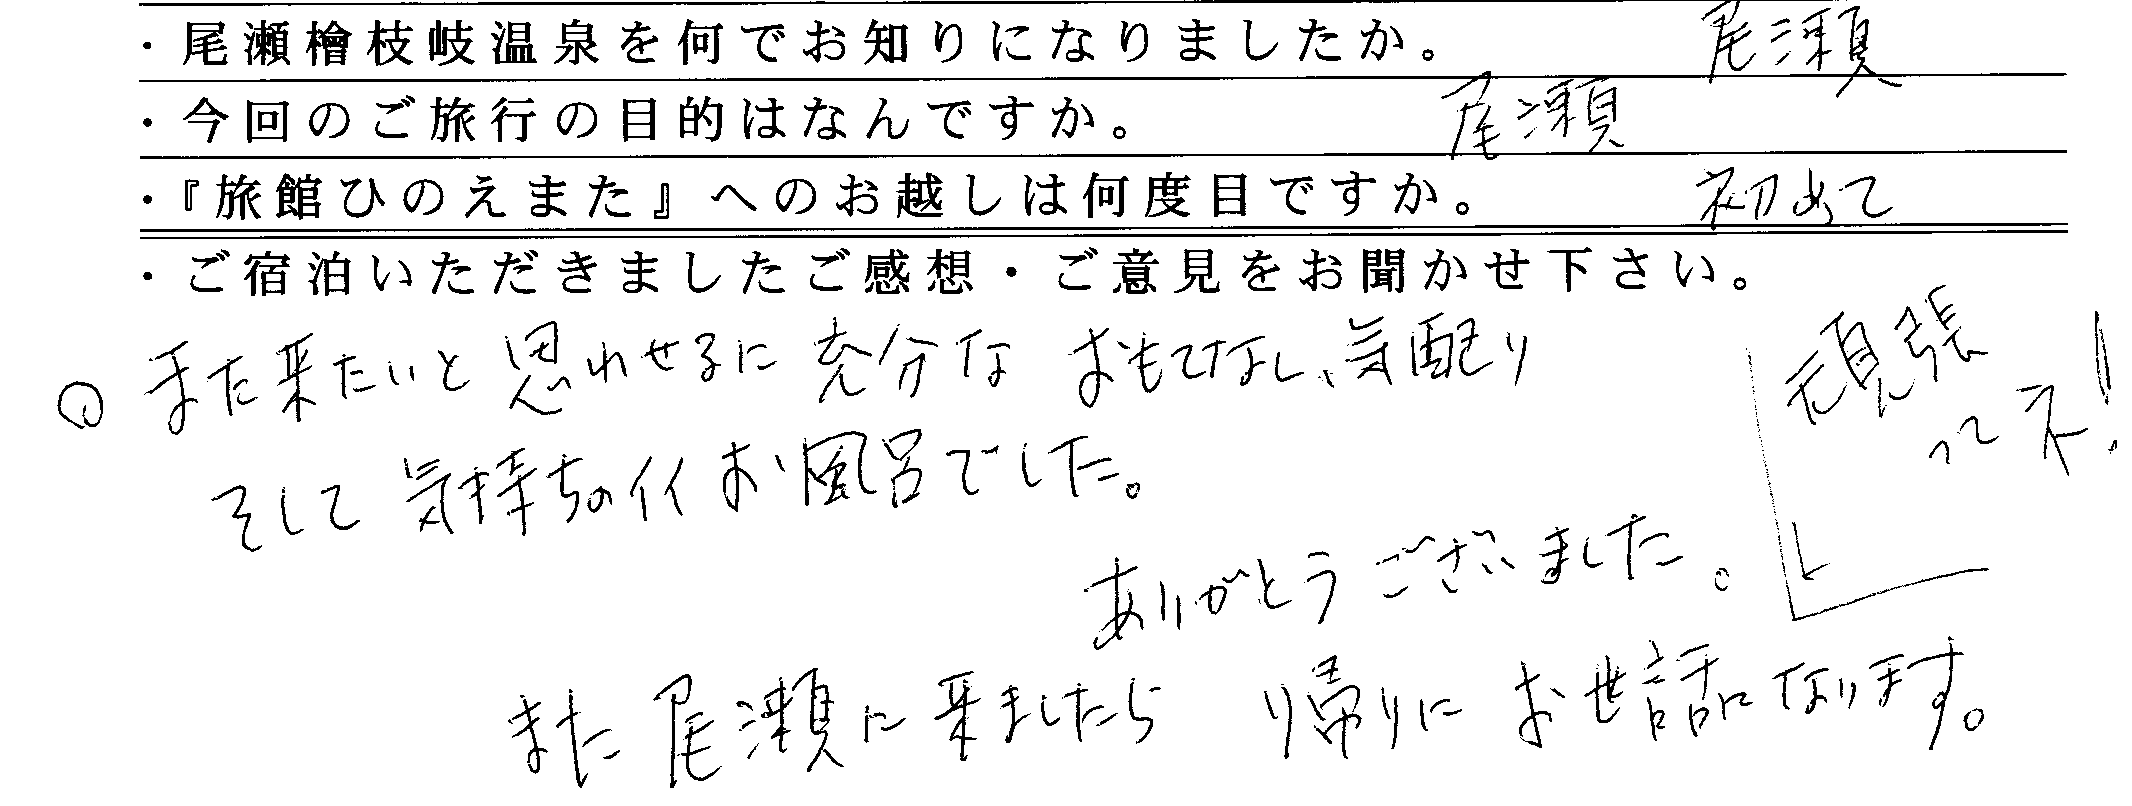 ・尾瀬檜枝岐温泉を何でお知りになりましたか。 尾瀬
・今回のご旅行の目的はなんですか。 尾瀬
・『旅館ひのえまた』へのお越しは何度目ですか。 初めて
・ご宿泊いただきましたご感想・ご意見をお聞かせ下さい。
○ また来たいと思わせるに充分な おもてなし、気配り
そして 気持ちのイイ お風呂でした。
頑張
ってネ!
ありがとうございました。
また 尾瀬に来ましたら 帰りに お世話になります。